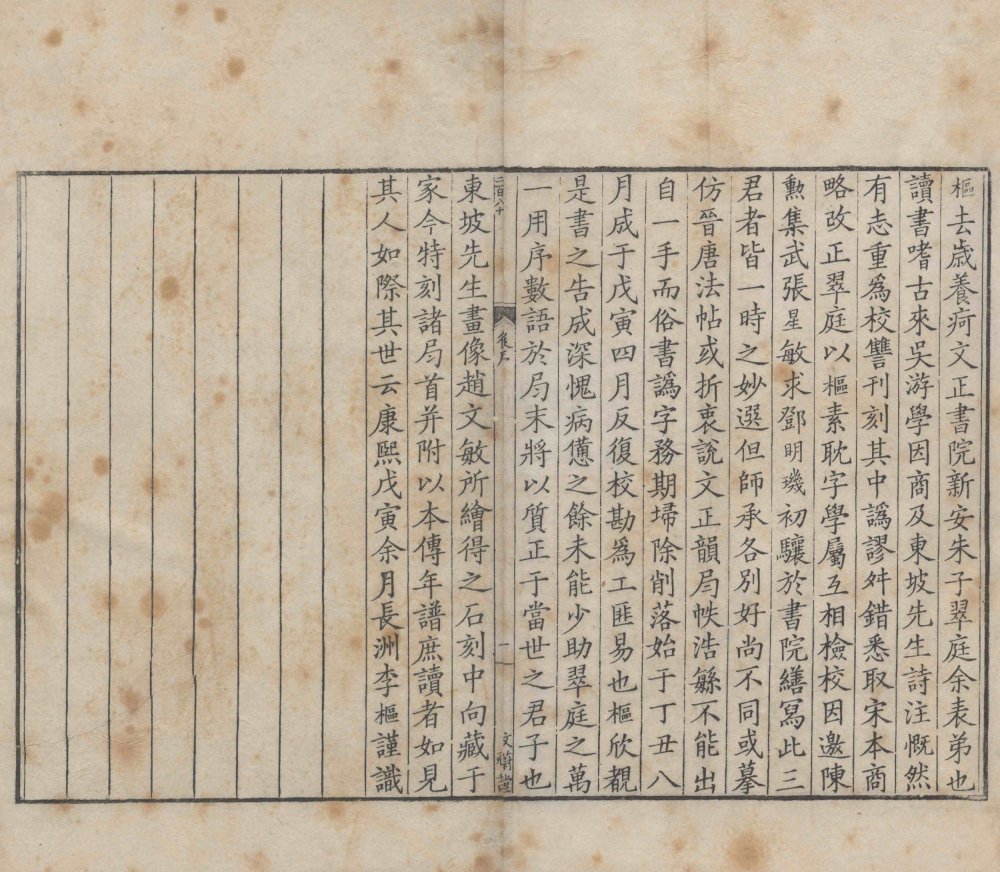 樞去歳養疴文正書院新安朱子翠庭余表弟也
讀書嗜古來吳游學因商及東坡先生詩注慨然
有志重爲校讐刊刻其中譌謬舛錯悉取宋本商
略改正翠庭以樞素耽字學屬互相檢校因邀陳
勲集武張星敏求鄧明璣初驤於書院繕寫此三
君者皆一時之妙選但師承各別好尚不同或摹
仿晉唐法帖或折衷說文正韻局帙浩繇不能出
自一手而俗書譌字務期埽除削落始于丁丑八
月成于戊寅四月反復校勘爲工匪易也樞欣覩
是書之告成深愧病憊之餘未能少助翠庭之萬
一用序數語於局末將以質正于當世之君子也
二百八十
後序
一
文蔚堂
東坡先生畫像趙文敏所繪得之石刻中向藏于
家今特刻諸局首并附以本傳年譜庶讀者如見
其人如際其世云康熙戊寅余月長洲李樞謹識